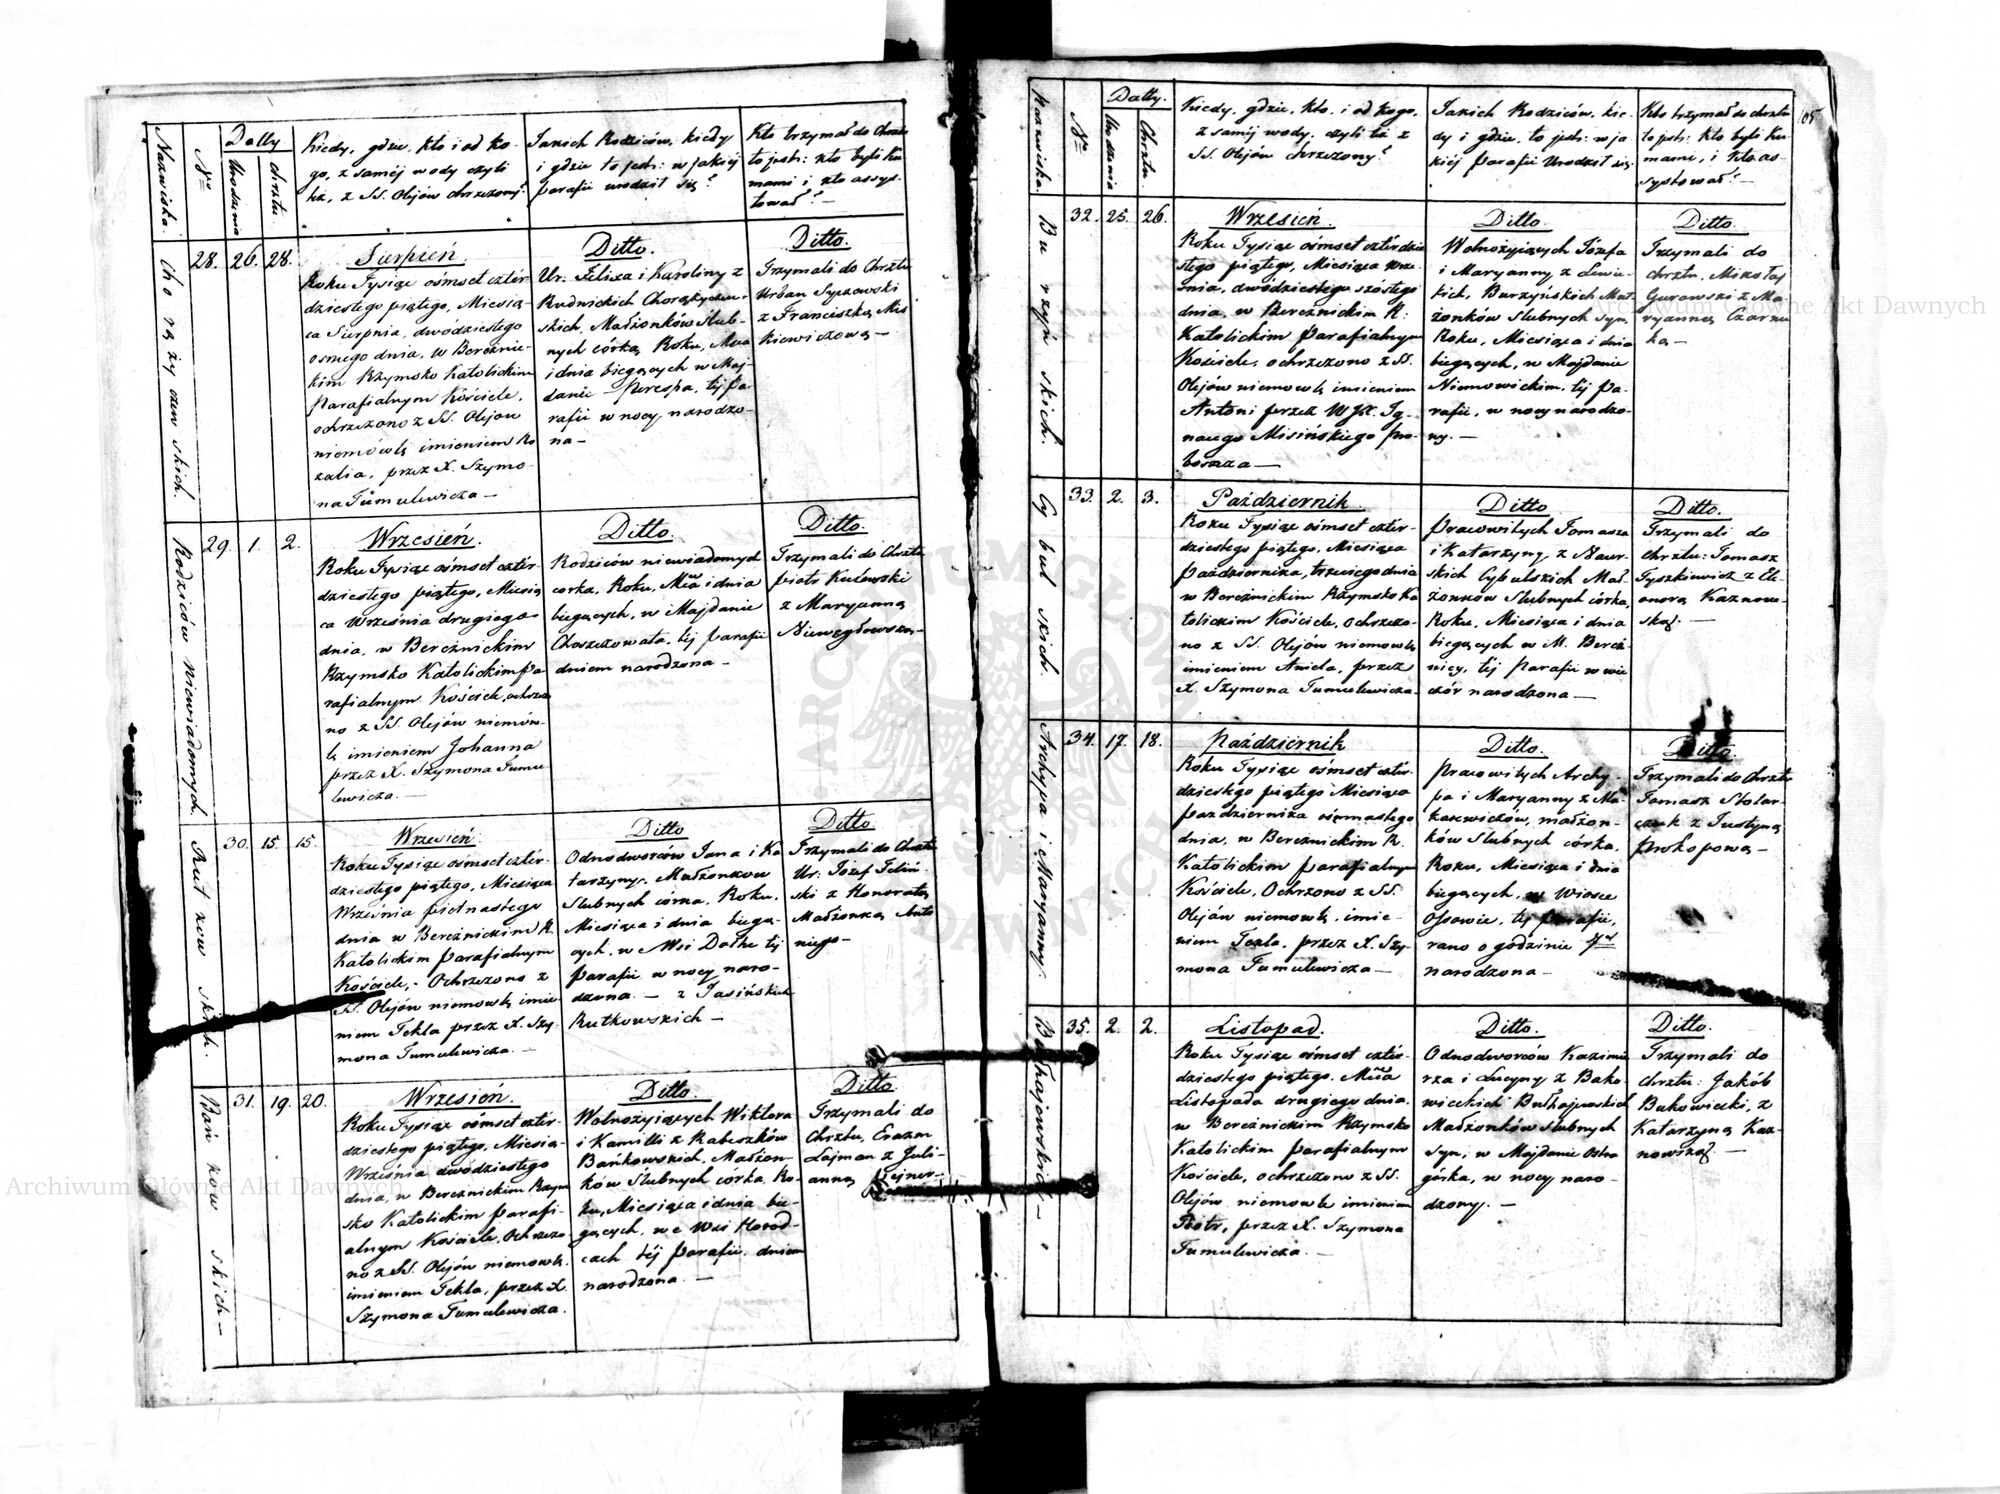 Nazwiska.
Nro
Datty
Urodzenia
chrztu.
Kiedy, gdzie, kto i od ko-
go, z saméj wody czyli
też, z SS. Olejów chrzczony?
Jakich Rodziców, kiedy
i gdzie to jest: w jakiéj
parafii urodził się?
Kto trzymał do Chrztu
to jest: kto byli Ku-
mami i kto assys-
tował? —
Cho rą ży czew skich.
28. 26. 28.
Sierpień
Roku Tysiąc ośmset czter-
dziestego piątego, Miesią-
ca Sierpnia, dwudziestego
osmego dnia, w Bereźnic-
kim Rzymsko Katolickim
Parafialnym Kościele,
ochrzczono z SS. Olejow
niemowlę imieniem Ro
zalia, przez X. Szymo-
na Tumulewicza —
Ditto.
Ur. Felixa i Karoliny z
Rudnickich Chorążyczew-
skich, Małżonków Ślub-
nych córka, Roku, Mca
i dnia bieżących w Maj-
danie — Perespa, téj pa-
rafii w nocy, narodzo-
na —
Ditto.
Trzymali do Chrztu
Urban Syczowski
z Franciszką Mis
kiewiczową —
Rodziców niewiadomych
29. 1. 2.
Wrzesień.
Roku Tysiąc ośmset czter-
dziestego piątego, Miesią
ca Września drugiego
dnia, w Bereźnickim
Rzymsko Katolickim Pa
rafialnym Kościele, ochrzco
no z SS. Olejów niemów-
lę imieniem Johanna
przez X. Szymona Tumu
lewicza. —
Ditto.
Rodziców niewiadomych
corka, Roku, Mca i dnia
bieżących, w Majdanie
téj parafii
dniem narodzona —
Ditto.
Trzymali do Chrztu
Piotr Kulewski
z Maryanną
Niewęgłowską —
Rut kow skich.
30. 15. 15.
Wrzesień
Roku Tysiąc ośmset czter-
dziestego piątego, Miesiąca
Września piętnastego
dnia w Bereźnickim R.
Katolickim parafialnym
Kościele, — Ochrzczono z
SS. Olejów niemowlę imie
niem Tekla przez X. Szy-
mona Tumulewicza. —
Ditto
Odnodworców Jana i Ka
tarzyny, Małżonkow
Ślubnych córka, Roku,
Miesiąca i dnia bieżą-
cych, w Wsi téj
parafii w nocy naro-
dzona. — z Jasińskich
Rutkowskich —
Ditto.
Trzymali do Chrztu
Ur: Józef Feliń-
ski z Honoratą
Małżonką Anto
niego —
Bań kow skich —
31. 19. 20.
Wrzesień.
Roku Tysiąc ośmset czter-
dziestego piątego, Miesią-
Września dwudziestego
dnia, w Bereźnickim Rzym
sko Katolickim parafi-
alnym Kościele, Ochrzczo
no z SS. Olejów niemowlę.
imieniem Tekla, przez X.
Szymona Tumulewicza.
Ditto.
Wolnożyjących Wiktora
i Kamilli z Rabeszków
Bańkowskich, Małżon-
ków Ślubnych córka, Ro-
ku, Miesiąca i dnia bie-
żących, we Wsi Horod-
cach téj parafii. dniem
narodzona. —
Ditto
Trzymali do
Chrztu, Erazm
Lajman z Juli-
anną
Nazwiska.
Nro
Datty.
Urodzenia
Chrztu.
Kiedy, gdzie, kto, i od kogo,
z saméj wody, czyli téż z
SS. Olejów chrzczony?
Jakich Rodziców, kie-
dy i gdzie, to jest: w ja-
kiéj parafii Urodził się
Kto trzymał do chrztu
to jest: kto byli Ku-
mami, i kto as-
systował? —
105
Bu rzyń skich.
32. 25. 26.
Wrzesień.
Roku Tysiąc ośmset czterdzie
stego piątego, Miesiąca Wrze-
śnia, dwudziestego szóstego
dnia, w Bereźnickim R:
Katolickim Parafialnym
Kościele, ochrzczono z SS.
Olejów niemowlę imieniem
Antoni przez WJX. Ig-
nacego Misińskiego pro-
boszcza —
Ditto.
Wolnożyjących Józefa
i Maryanny z Lewic-
kich, Burzyńskich Mał-
żonków Ślubnych syn,
Roku, Miesiąca i dnia
bieżących, w Majdanie
Niemowickim, téj pa-
rafii, w nocy narodzo-
ny. —
Ditto.
Trzymali do
chrztu, Mikołaj
Gurowski z Ma-
ryanną Czarnec
ką —
Cy bul skich.
33. 2. 3.
Październik.
Roku Tysiąc ośmset czter-
dziestego piątego, Miesiąca
Października, trzeciego dnia
w Bereźnickim Rzymsko Ka
tolickim Kościele, ochrzczo-
no z SS. Olejów niemowlę
imieniem Aniela, przez
X. Szymona Tumulewicza —
Ditto
Pracowitych Tomasza
i Katarzyny, z Nawr-
skich Cybulskich Mał-
żonków Ślubnych córka,
Roku, Miesiąca i dnia
bieżących w M. Bereź-
nicy, téj Parafii w wie
czór narodzona —
Ditto.
Trzymali do
chrztu: Tomasz
Tyszkiewicz z Ele-
onorą Kaznow-
ską. —
Archypa i Maryanny.
34. 17. 18.
Październik
Roku Tysiąc ośmset czter-
dziestego piątego Miesiąca
Października ośmnastego
dnia, w Bereźnickim R.
Katolickim parafialnym
Kościele, Ochrzono z SS.
Olejów niemowlę, imie-
niem Tekla, przez X. Szy-
mona Tumulewicza —
Ditto.
Pracowitych Archy-
pa i Maryanny z Ma-
karewiczów, małżon-
ków Ślubnych córka,
Roku, Miesiąca i dnia
bieżących, w Wiosce
Ossowie, téj Parafii,
rano o godzinie 7ej
narodzona —
Ditto.
Trzymali do Chrztu
Tomasz Stolar-
czuk z Justyną
Prokopową —
35. 2. 2.
Listopad.
Roku Tysiąc ośmset czter-
dziestego piątego, Mca
Listopada drugiego dnia,
w Bereźnickim Rzymsko
Katolickim parafialnym
Kościele, ochrzczono z SS.
Olejów niemowle imieniem
Piotr, przez X. Szymona
Tumulewicza. —
Ditto.
Odnodworców Kazimie
rza i Lucyny z Bako-
wieckich Bułhajowskich
Małżonków Ślubnych
syn, w Majdanie Ostro-
górka, w nocy naro-
dzony. —
Ditto.
Trzymali do
chrztu: Jakób
Bukowiecki, z
Katarzyną Kaz-
nowską. —
ARCHIWUM GŁÓWNE
AKT DAWNYCH
Archiwum Główne Akt Dawnych
Archiwum Główne Akt Dawnych